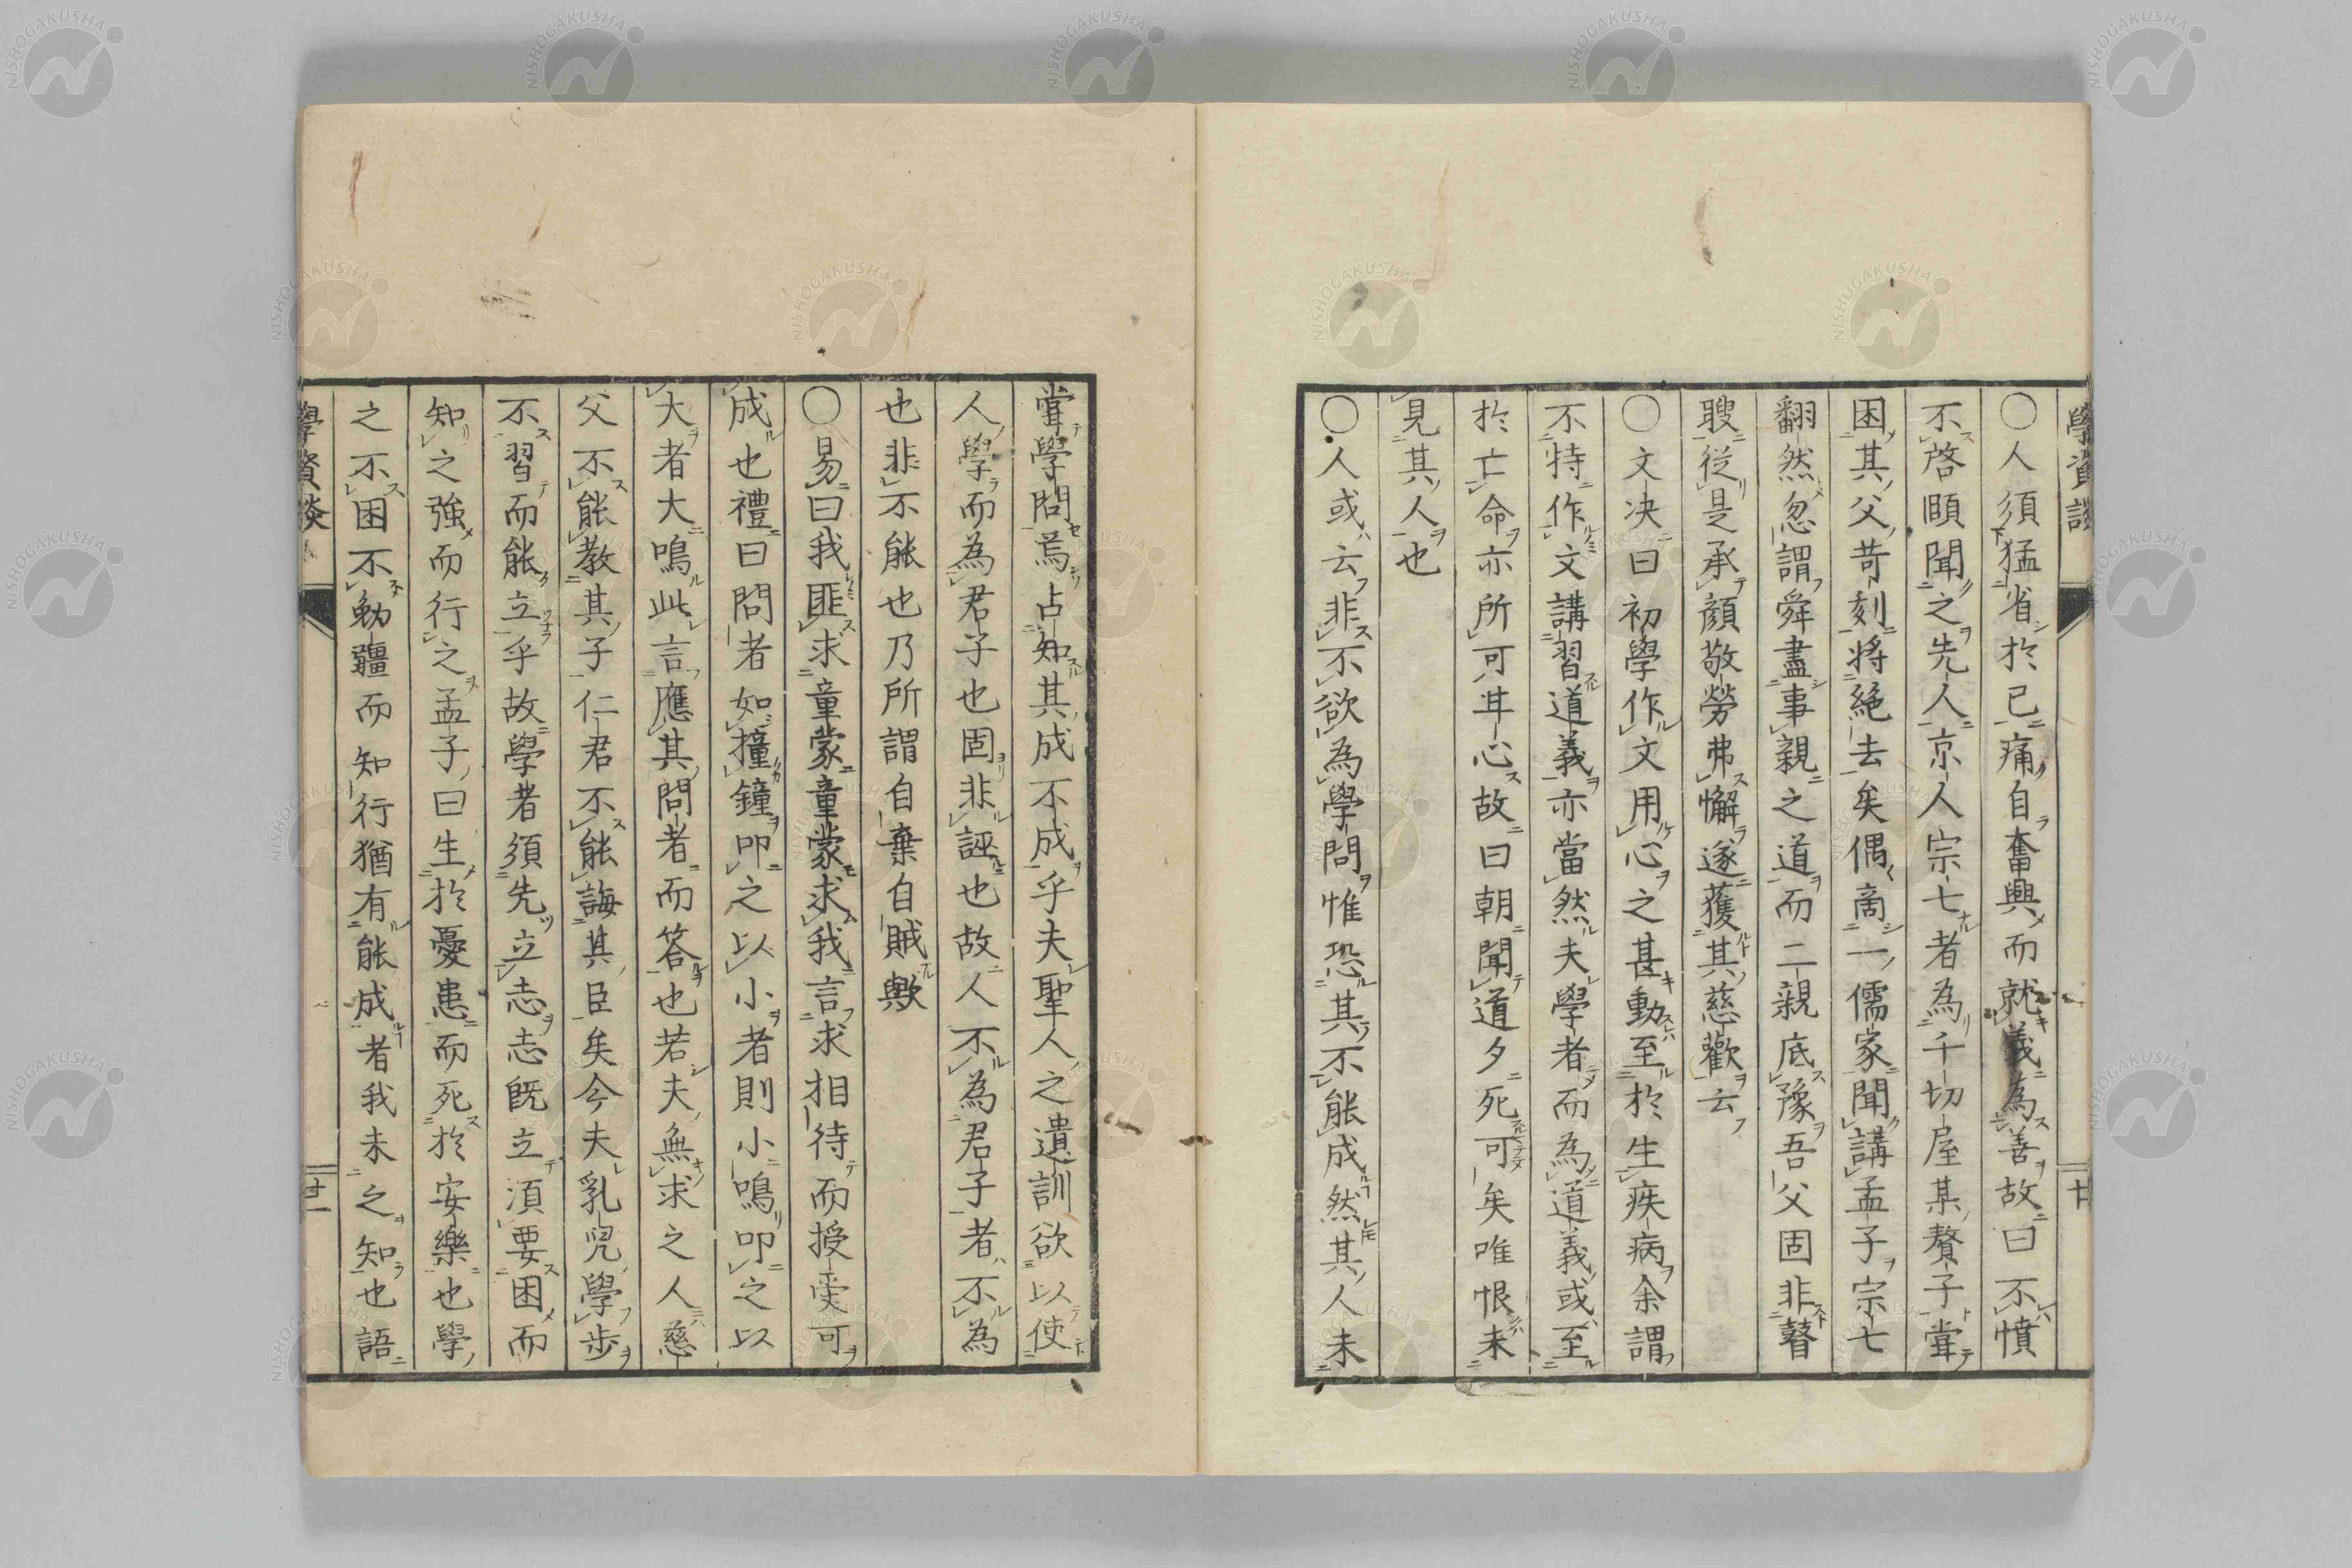 學資談
〇人須猛省於己痛自奮興而就義為善故曰不憤
不啓頤聞之先人京人宗七者為千切屋某贅子甞
困其父苛刻將絶去矣偶啇一儒家聞講孟子宗七
翻然忽謂舜盡事親之道而二親底豫吾父固非瞽
瞍從是承顔敬勞弗懈遂獲其慈歡云
〇文决曰初學作文用心之甚動至於生疾病余謂
不特作文講習道義亦當然夫學者而為道義或至
於亡命亦所可耳心故曰朝聞道夕死可矣唯恨未
見其人也
〇人或云非不欲為學問惟恐其不能成然其人未
甞學問焉占知其成不成乎夫聖人之遺訓欲以使
人學而為君子也固非誣也故人不為君子者不為
也非不能也乃所謂自棄自賊歟
〇易曰我匪求童蒙童蒙求我言求相待而授受可
成也禮曰問者如撞鐘叩之以小者則小鳴叩之以
大者大鳴此言應其問者而答也若夫無求之人慈
父不能教其子仁君不能誨其臣矣今夫乳兒學步
不習而能立乎故學者須先立志志既立湏要困而
知之強而行之孟子曰生於憂患而死於安樂也學
之不困不勉彊而知行猶有能成者我未之知也語
學資談
廿一